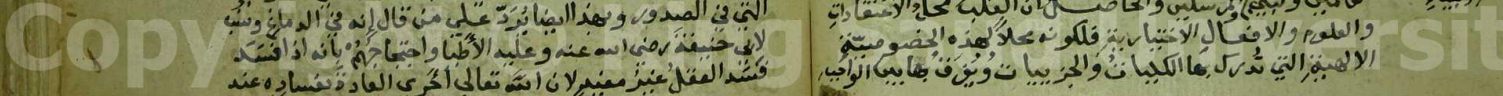 عالمين وتبليغ المرسلين والحاصل ان القلب محل الاعتقادات
والعلوم والافعال الاختيارية فلكونه محلا لهذه الخصوصية
الالهية التي تدرك بها الكليات والجزييات ويفرق بها بين الواجب
التي في الصدور وبهذا ايضا يرد على من قال انه في الدماغ ونسب
لابي حنيفة رضي الله عنه وعليه الاطبا واحتجاجهم بانه اذا فسد
فسد العقل غير مفيد لان الله تعالى اجرى العادة بفساده عند